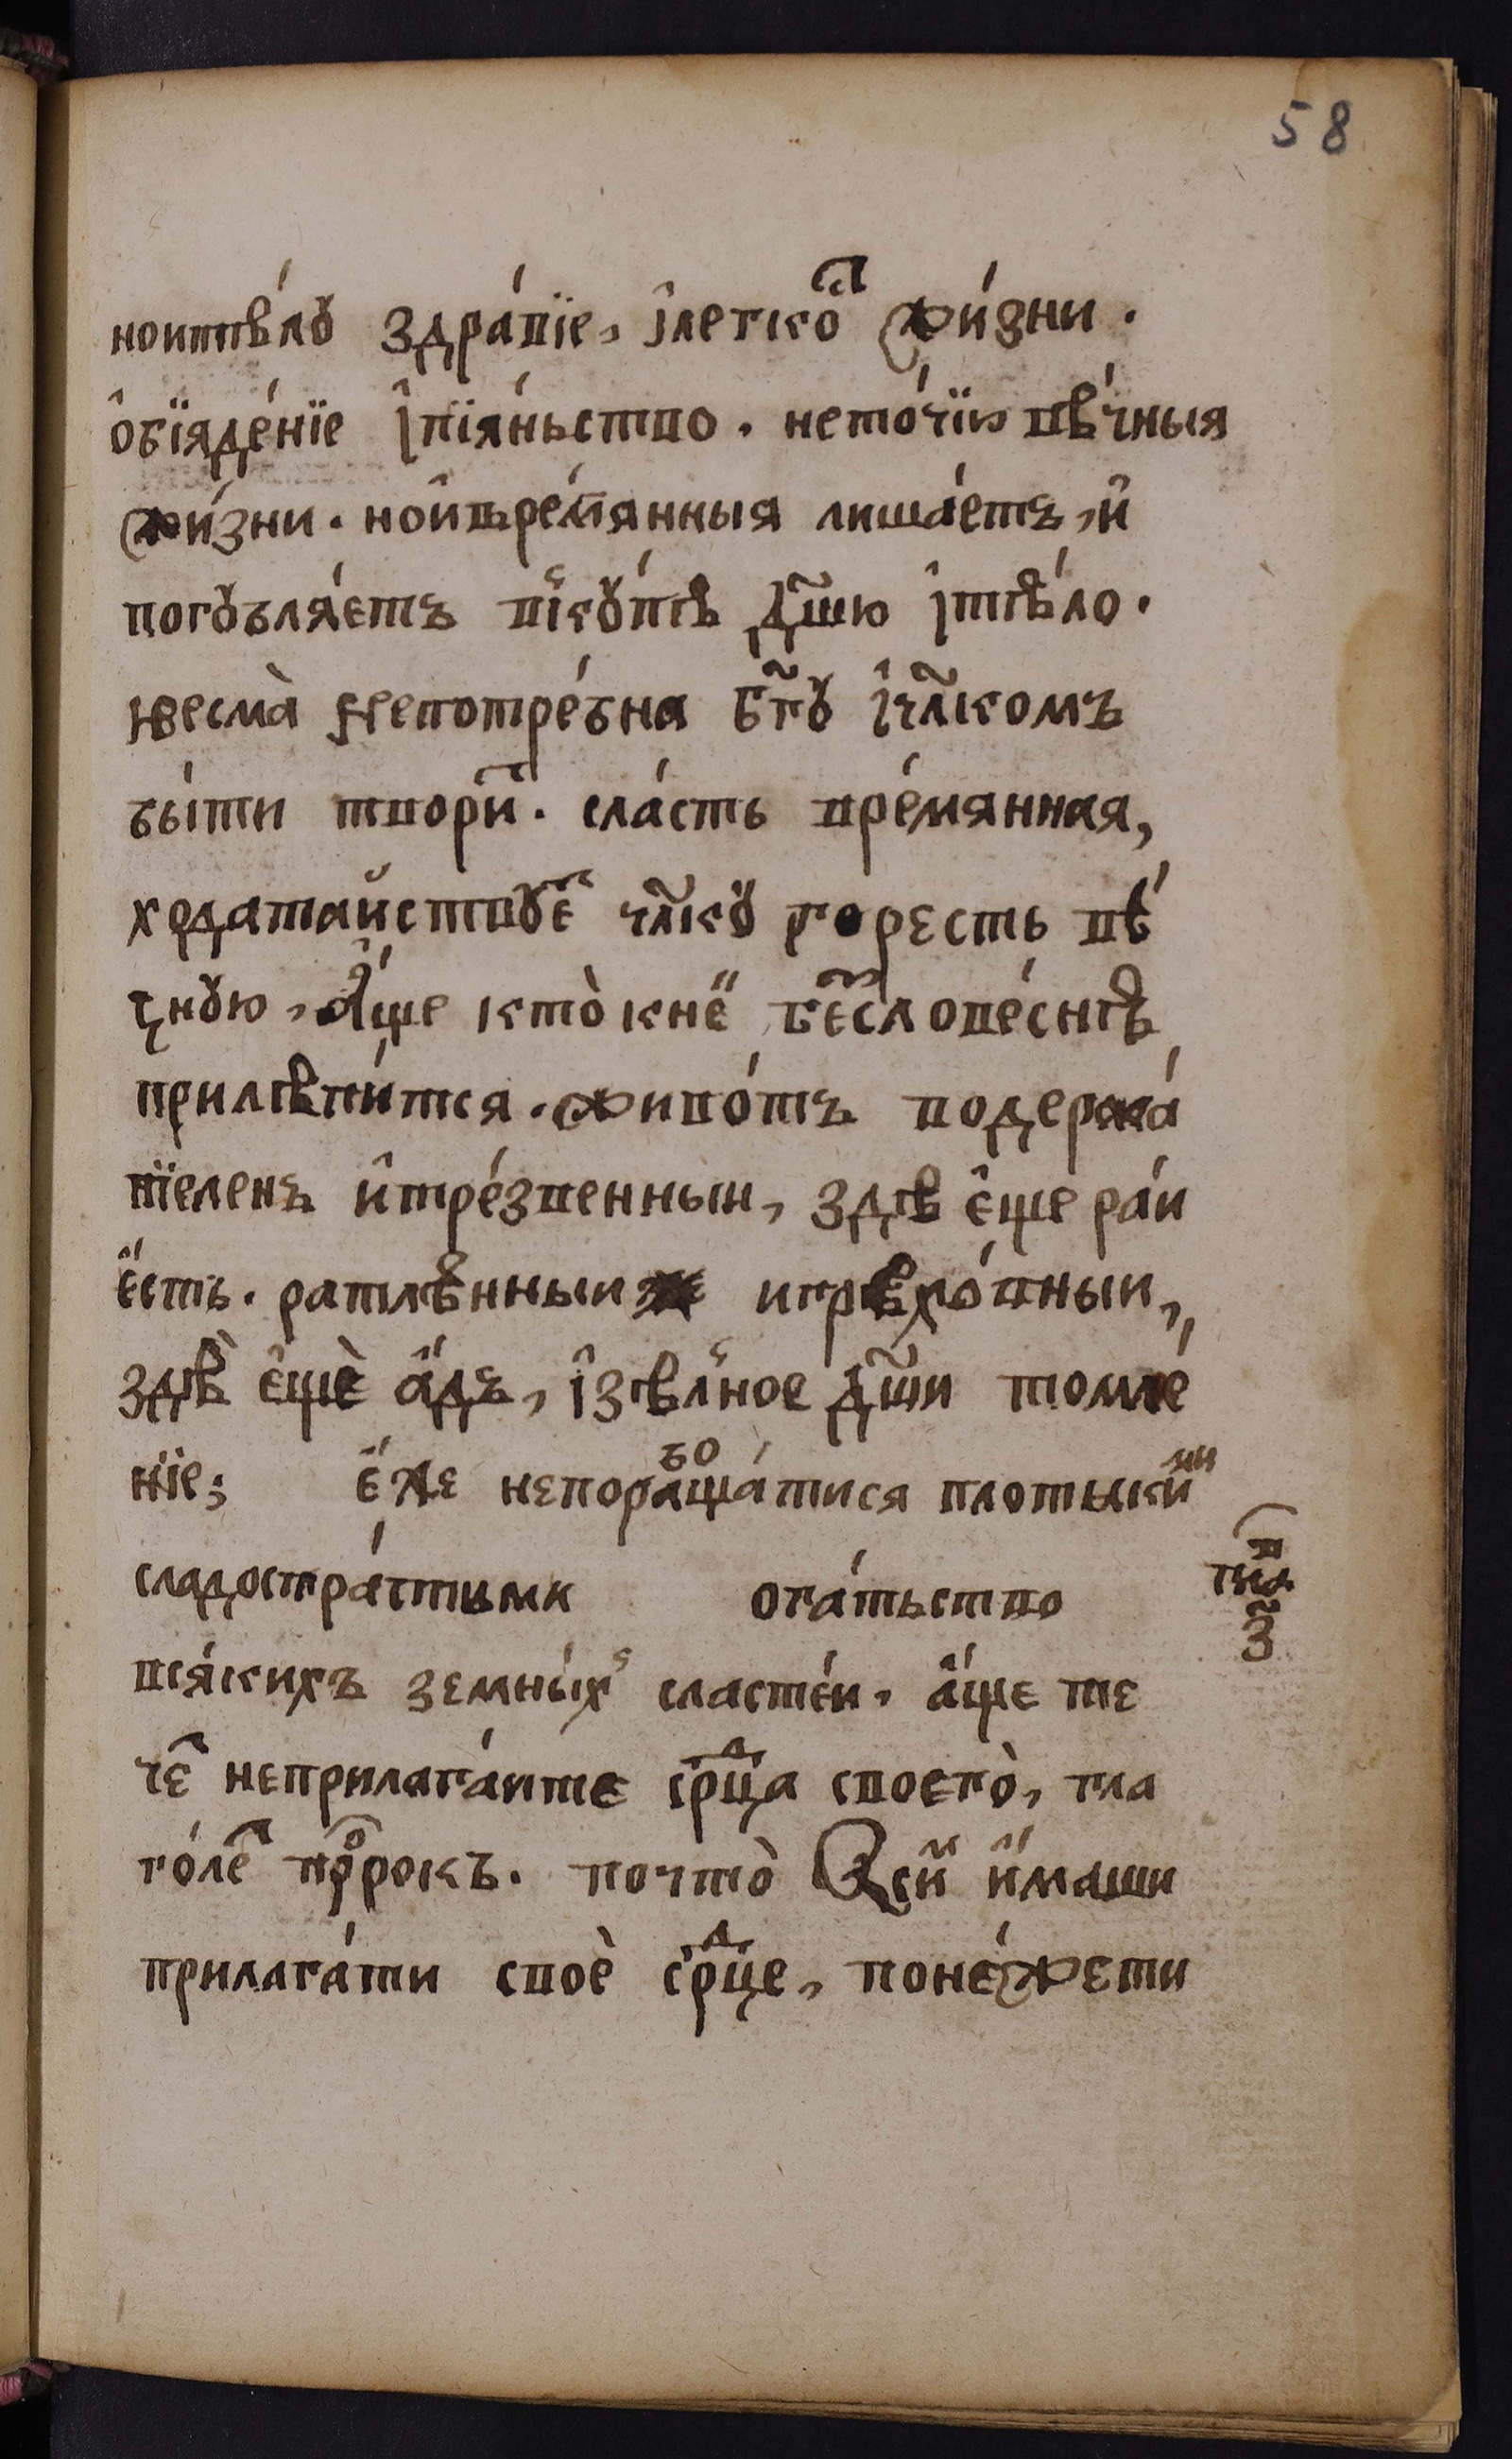 58
нои тѣ́лꙋ здра́вїе, і҆ легко́сть жи́зни.
ѡ҆бїяде́нїе і҆ пїя́ньство. не то́чїю вѣ́чныя
жи́зни. но и҆ вре́мянныя лиша́етъ, и҆
погꙋбля́етъ вкꙋ́пѣ дш҃ю і҆ тѣ́ло.
и҆ весма̀ непотре́бна бг҃ꙋ і҆ чл҃комъ
бы́ти твори́т. сла́сть вре́мянная,
ходатайствꙋет чл҃кꙋ горесть вѣ́
чнꙋю, а҆́ще кто̀ к не́й бесловѐснѣ
прилѣпи́тся. живо́тъ воздержа́
нїемъ и҆ тре́звенныи, здѣ е҆ще ра́и
е҆́сть. ратлѣ́нныи и грѣхо́вныи,
здѣ̀ е҆щѐ а҆́дъ, і҆ зѣ́лное дш҃и томле́
нїе; е҆́же непорабоща́тися плотьскими
сладостра́стьми огáтьство
вся́кихъ земны́х сласте́и. а҆́ще те
че́т не прилага́ите срдца своего̀, гла
го́лет пророкъ. почто̀ ѽ сѝ и҆́маши
прилага́ти своѐ срдце, поне́же ти
гла
в
з҃